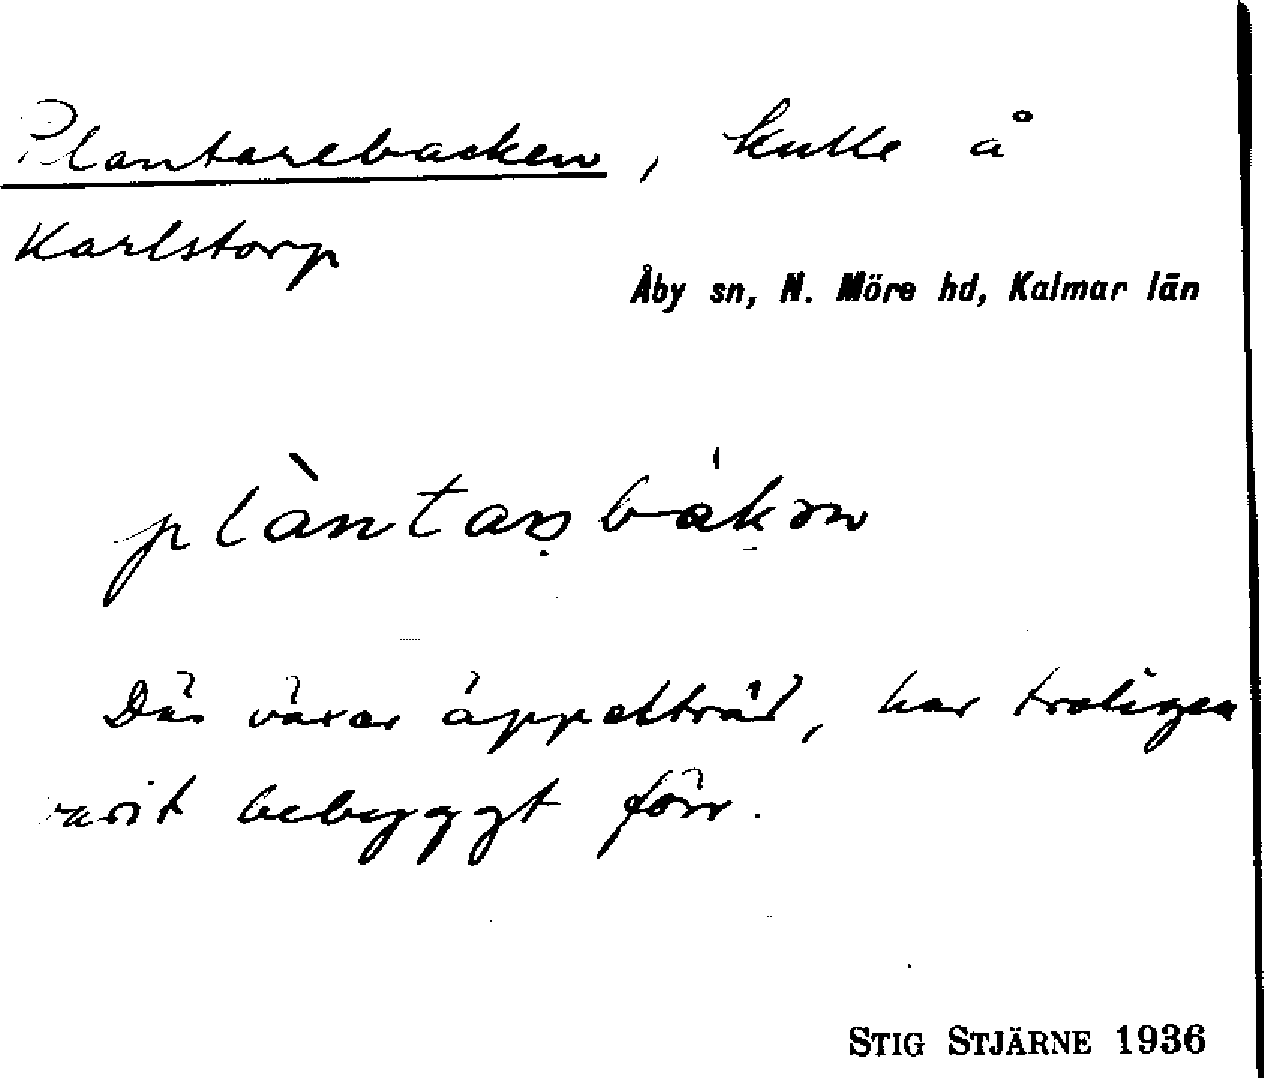 Plantarebacken, kulle å
Karlstorp
Åby sn, N. Möre hd, Kalmar län
plàntarəbákən
Där växer äppelträd, har troligen
varit bebyggt förr.
STIG STJÄRNE 1936